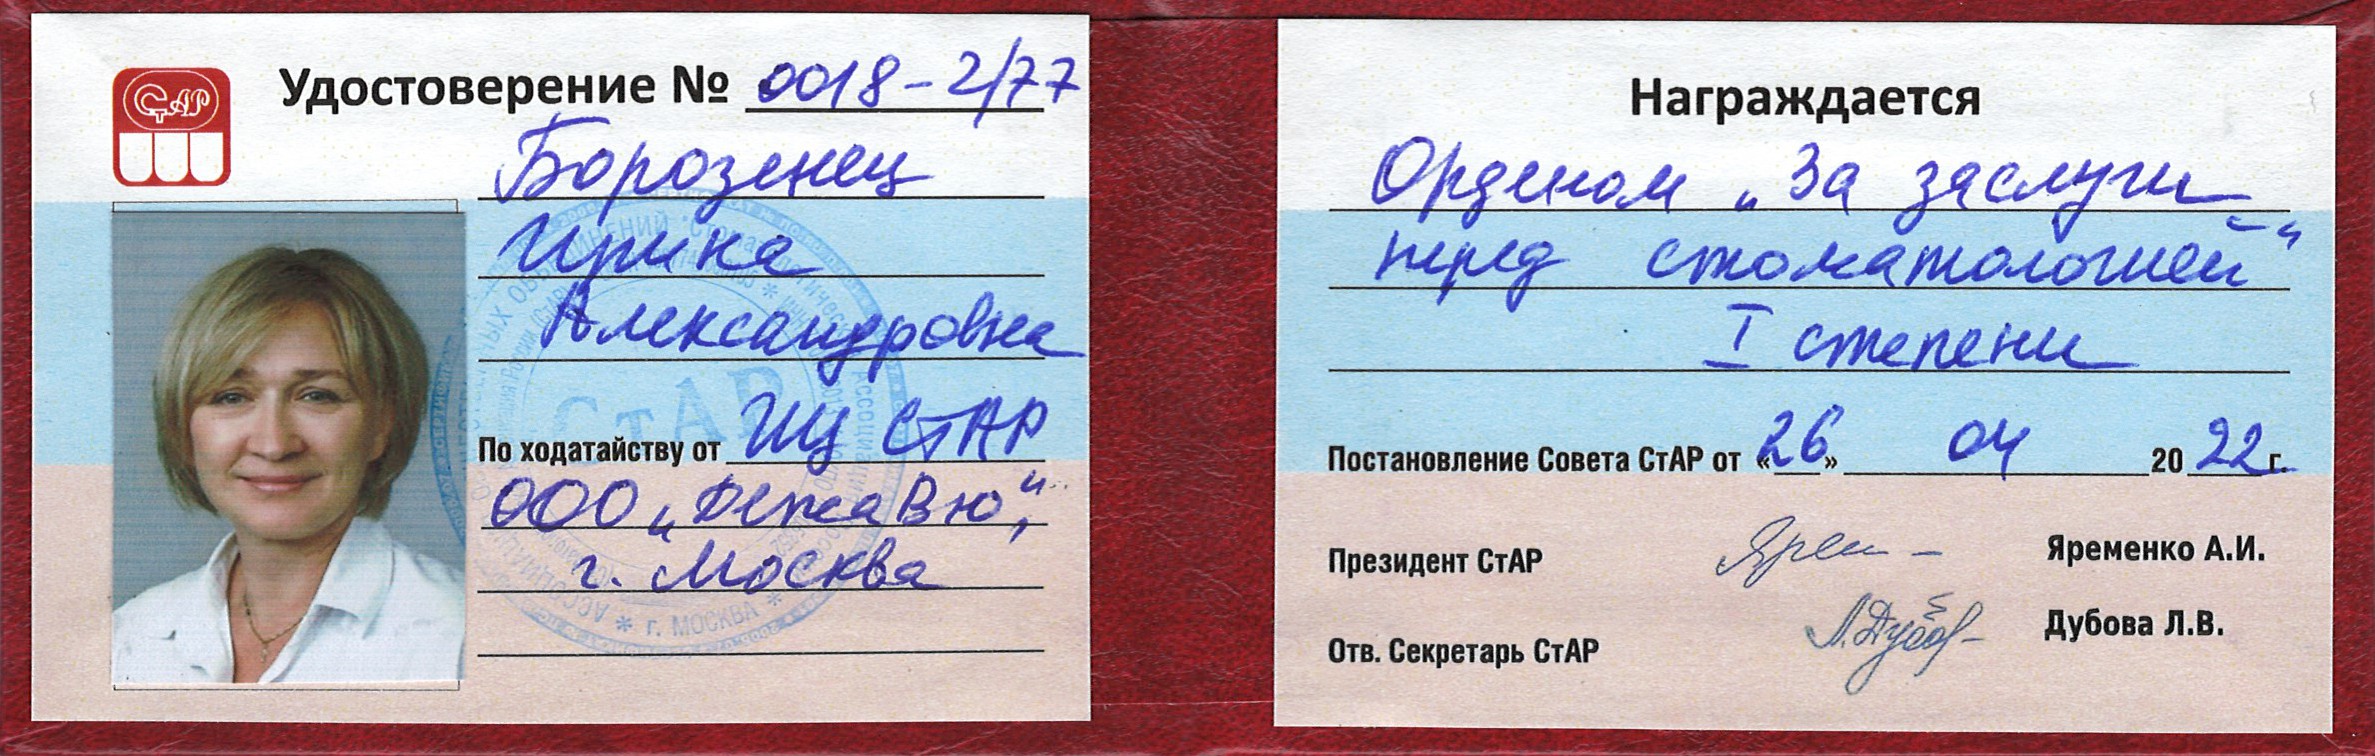 СтАР
Удостоверение № 0018-2/77
Борозенец
Ирина
Александровна
По ходатайству от ИЦ СтАР
ООО „ДежаВю",
г. Москва
СтАР
* г. МОСКВА *
Награждается
Орденом „За заслуги
перед стоматологией"
I степени
Постановление Совета СтАР от «26» 04 2022 г.
Президент СтАР Яременко А.И.
Отв. Секретарь СтАР Дубова Л.В.